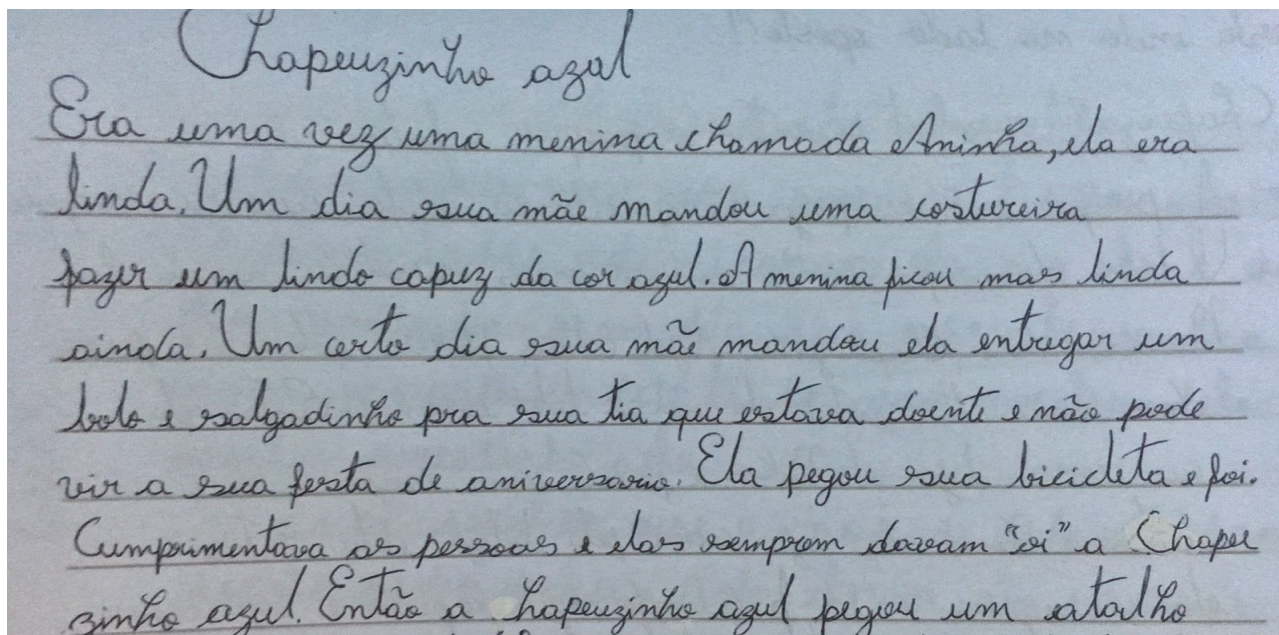 Chapeuzinho azul
Era uma vez uma menina chamada Aninha, ela era
linda. Um dia sua mãe mandou uma costureira
fazer um lindo capuz da cor azul. A menina ficou mas linda
ainda. Um certo dia sua mãe mandou ela entregar um
bolo e salgadinho pra sua tia que estava doente e não pode
vir a sua festa de aniversario. Ela pegou sua bicicleta e foi.
Cumprimentava as pessoas e elas semprem davam "oi" a Chapeu
zinho azul. Então a Chapeuzinho azul pegou um atalho